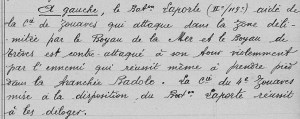 A gauche, le Bat^on Laporte (II^e/113^e) aidé de
la C^ie de Zouaves qui attaque dans la zone déli-
mitée par le Boyau de la Mer et le Boyau de
Trèves est contre-attaqué à son tour violemment
par l'ennemi qui réussit même à prendre pied
dans la tranchée Radole. La C^ie du 4^e Zouaves
mise à la disposition du Bat^on Laporte réussit
à les déloger.